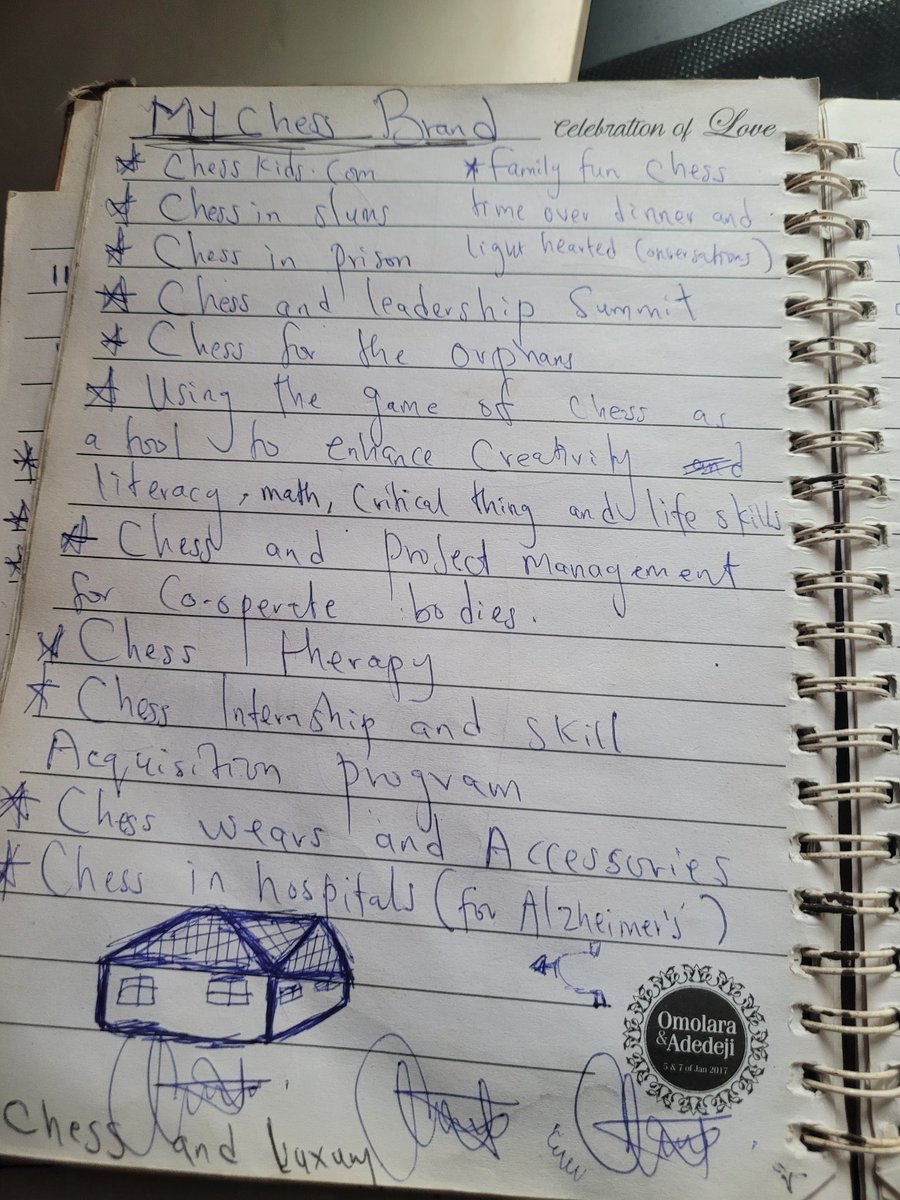 My Chess Brand
Celebration of Love
* Chess Kids.Com
* Chess in slums
* Chess in prison
* Family fun Chess
time over dinner and
light hearted conversations)
* Chess and leadership Summit
* Chess for the orphans
* Using the game of chess as
a tool to enhance Creativity
literacy, math, Critical thing and life skills
* Chess and project management
for Co-operate bodies.
* Chess therapy
* Chess Internship and skill
Acquisition program
* Chess wears and Accessories
* Chess in hospitals (for Alzheimer's)
Omolara
& Adedeji
5 & 7 of Jan 2017
Chess and Luxury